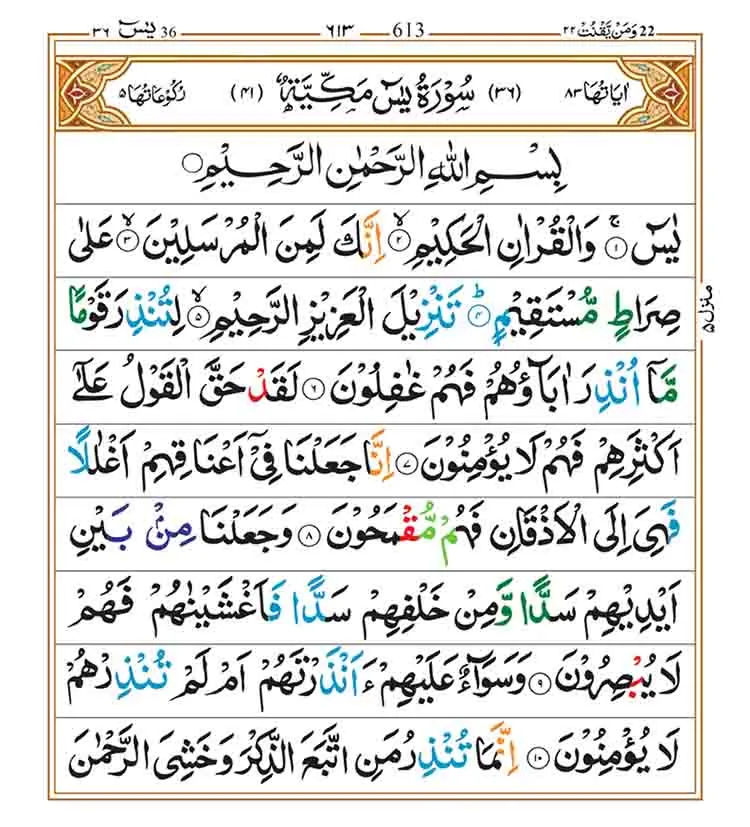 ٣٦ يٰسٓ 36 ٦١٣ 613 ٢٢ وَمَنْ يَّقْنُتْ 22
اٰيَاتُهَا ٨٣ (٣٦) سُوْرَةُ يٰسٓ مَكِّيَّةٌ (٤١) رُكُوْعَاتُهَا ٥
بِسْمِ اللّٰهِ الرَّحْمٰنِ الرَّحِيْمِ ○
يٰسٓ ۚ ١ وَالْقُرْاٰنِ الْحَكِيْمِ ۙ ٢ اِنَّكَ لَمِنَ الْمُرْسَلِيْنَ ۙ ٣ عَلٰى
صِرَاطٍ مُّسْتَقِيْمٍ ؕ ٤ تَنْزِيْلَ الْعَزِيْزِ الرَّحِيْمِ ۙ ٥ لِتُنْذِرَ قَوْمًا
مَّاۤ اُنْذِرَ اٰبَآؤُهُمْ فَهُمْ غٰفِلُوْنَ ٦ لَقَدْ حَقَّ الْقَوْلُ عَلٰۤى
اَكْثَرِهِمْ فَهُمْ لَا يُؤْمِنُوْنَ ٧ اِنَّا جَعَلْنَا فِيْۤ اَعْنَاقِهِمْ اَغْلٰلًا
فَهِيَ اِلَى الْاَذْقَانِ فَهُمْ مُّقْمَحُوْنَ ٨ وَجَعَلْنَا مِنْۢ بَيْنِ
اَيْدِيْهِمْ سَدًّا وَّمِنْ خَلْفِهِمْ سَدًّا فَاَغْشَيْنٰهُمْ فَهُمْ
لَا يُبْصِرُوْنَ ٩ وَسَوَآءٌ عَلَيْهِمْ ءَاَنْذَرْتَهُمْ اَمْ لَمْ تُنْذِرْهُمْ
لَا يُؤْمِنُوْنَ ١٠ اِنَّمَا تُنْذِرُ مَنِ اتَّبَعَ الذِّكْرَ وَخَشِيَ الرَّحْمٰنَ
منزل ٥